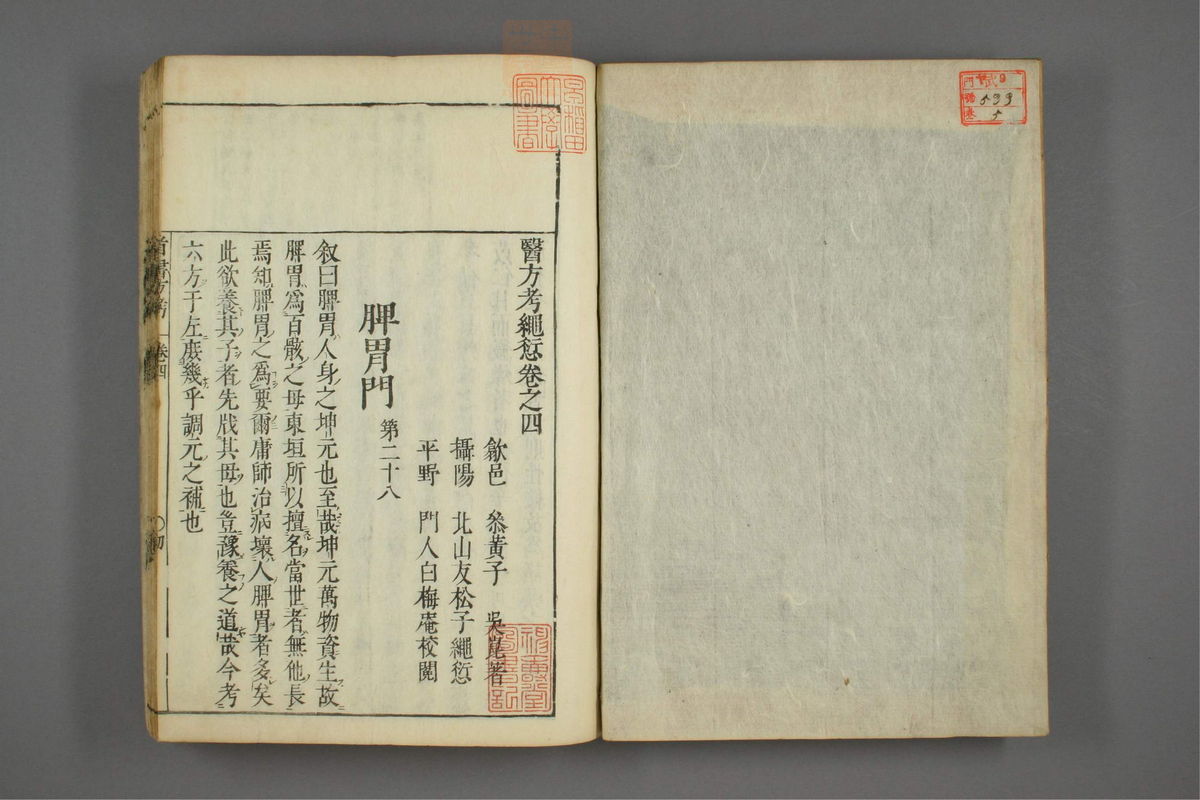 門 弐9
號 599
卷 5
早稲田大學圖書
醫方考繩愆卷之四
歙邑 叅黃子 吳崑著
攝陽 北山友松子繩愆
平野 門人白梅庵校閱
脾胃門 第二十八
叙曰脾胃人身之坤元也至哉坤元萬物資生故
脾胃爲百骸之母東垣所以擅名當世者無他長
焉知脾胃之爲要爾庸師治病壞人脾胃者多矣
此欲養其子者先戕其母也豈豫養之道哉今考
六方于左庶幾乎調元之補也
首書方考 卷四 〇初